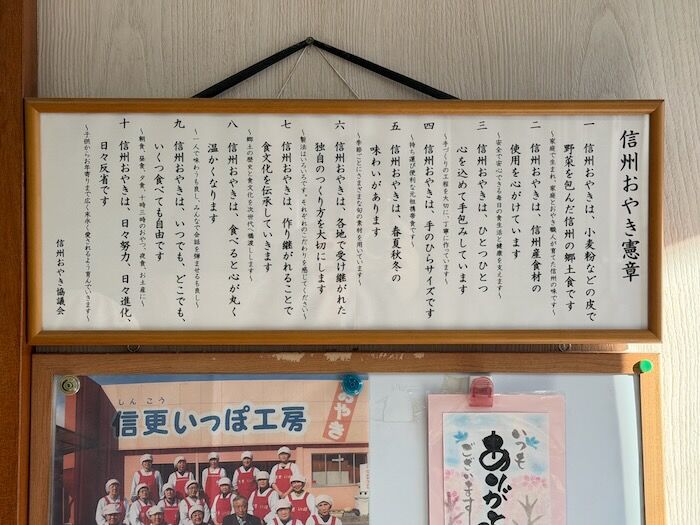 信州おやき憲章
一 信州おやきは、小麦粉などの皮で
野菜を包んだ信州の郷土食です
～家庭で生まれ、家庭とおやき職人が育てた信州の味です～
二 信州おやきは、信州産食材の
使用を心がけています
～安全で安心できる毎日の食生活と健康を支えます～
三 信州おやきは、ひとつひとつ
心を込めて手包みしています
～手づくりの工程を大切に、丁寧に作っています～
四 信州おやきは、手のひらサイズです
～持ち運び便利な元祖携帯食です～
五 信州おやきは、春夏秋冬の
味わいがあります
～季節ごとにさまざまな旬の素材を用いています～
六 信州おやきは、各地で受け継がれた
独自のつくり方を大切にします
～製法はいろいろです。それぞれのこだわりを感じてください～
七 信州おやきは、作り継がれることで
食文化を伝承していきます
～郷土の歴史と食文化を次世代へ橋渡しします～
八 信州おやきは、食べると心が丸く
温かくなります
～一人で味わうも良し、みんなで会話を弾ませるも良し～
九 信州おやきは、いつでも、どこでも、
いくつ食べても自由です
～朝食、昼食、夕食、十時三時のおやつ、夜食、お土産に～
十 信州おやきは、日々努力、日々進化、
日々反省です
～子供からお年寄りまで広く末永く愛されるよう育んでいきます～
信州おやき協議会
しんこう
信更いっぽ工房
おやき
いつも
ありがと
ございます